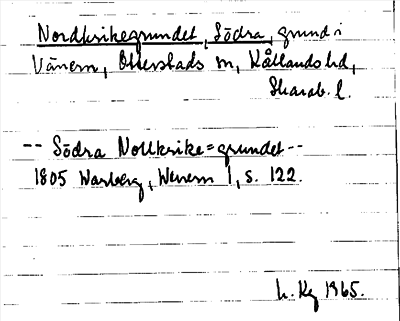 Nordkrikegrundet, Södra, grund i
Vänern, Otterstads sn, Kållands hd,
Skarab. l.
-- Södra Nollkrike=grundet --
1805 Warberg, Wenern 1, s. 122.
L. Kg 1965.